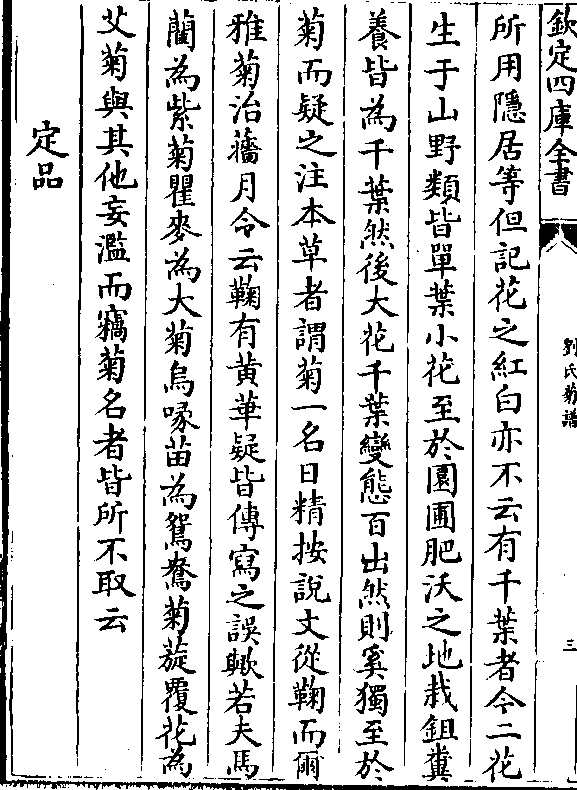 欽定四庫全書
劉氏菊譜
三
所用隱居等但記花之紅白亦不云有千葉者今二花
生于山野類皆單葉小花至於園圃肥沃之地栽鉏糞
養皆為千葉然後大花千葉變態百出然則奚獨至於
菊而疑之注本草者謂菊一名日精按說文從鞠而爾
雅菊治蘠月令云鞠有黄華疑皆傳寫之誤歟若夫馬
藺為紫菊瞿麥為大菊烏喙苗為鴛鴦菊蔙覆花為
艾菊與其他妄濫而竊菊名者皆所不取云
定品